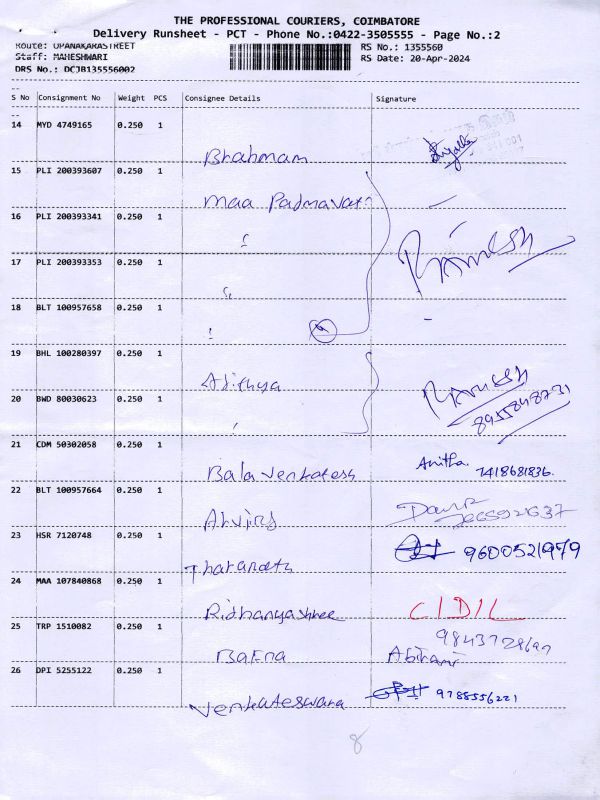 THE PROFESSIONAL COURIERS, COIMBATORE
Delivery Runsheet - PCT - Phone No.:0422-3505555 - Page No.:2
Route: OPANAKARASTREET
RS No.: 1355560
Staff: MAHESHWARI
RS Date: 20-Apr-2024
DRS No.: DCJB135556002
S No Consignment No Weight PCS Consignee Details Signature
14 MYD 4749165 0.250 1
Bhahmam
15 PLI 200393607 0.250 1
maa Padmavati
16 PLI 200393341 0.250 1
17 PLI 200393353 0.250 1
Ramesh
18 BLT 100957658 0.250 1
4
19 BHL 100280397 0.250 1
Adithya
Ramesh
20 BWD 80030623 0.250 1
8955848731
21 CDM 50302058 0.250 1
Bala Venkatesh Anitha 7418681836.
22 BLT 100957664 0.250 1
23 HSR 7120748 0.250 1
9600521979
24 MAA 107840868 0.250 1
Ridhanyashree CIDIL
25 TRP 1510082 0.250 1
Bafna Abirami
26 DPI 5255122 0.250 1
Venkateswara 9788556221
8